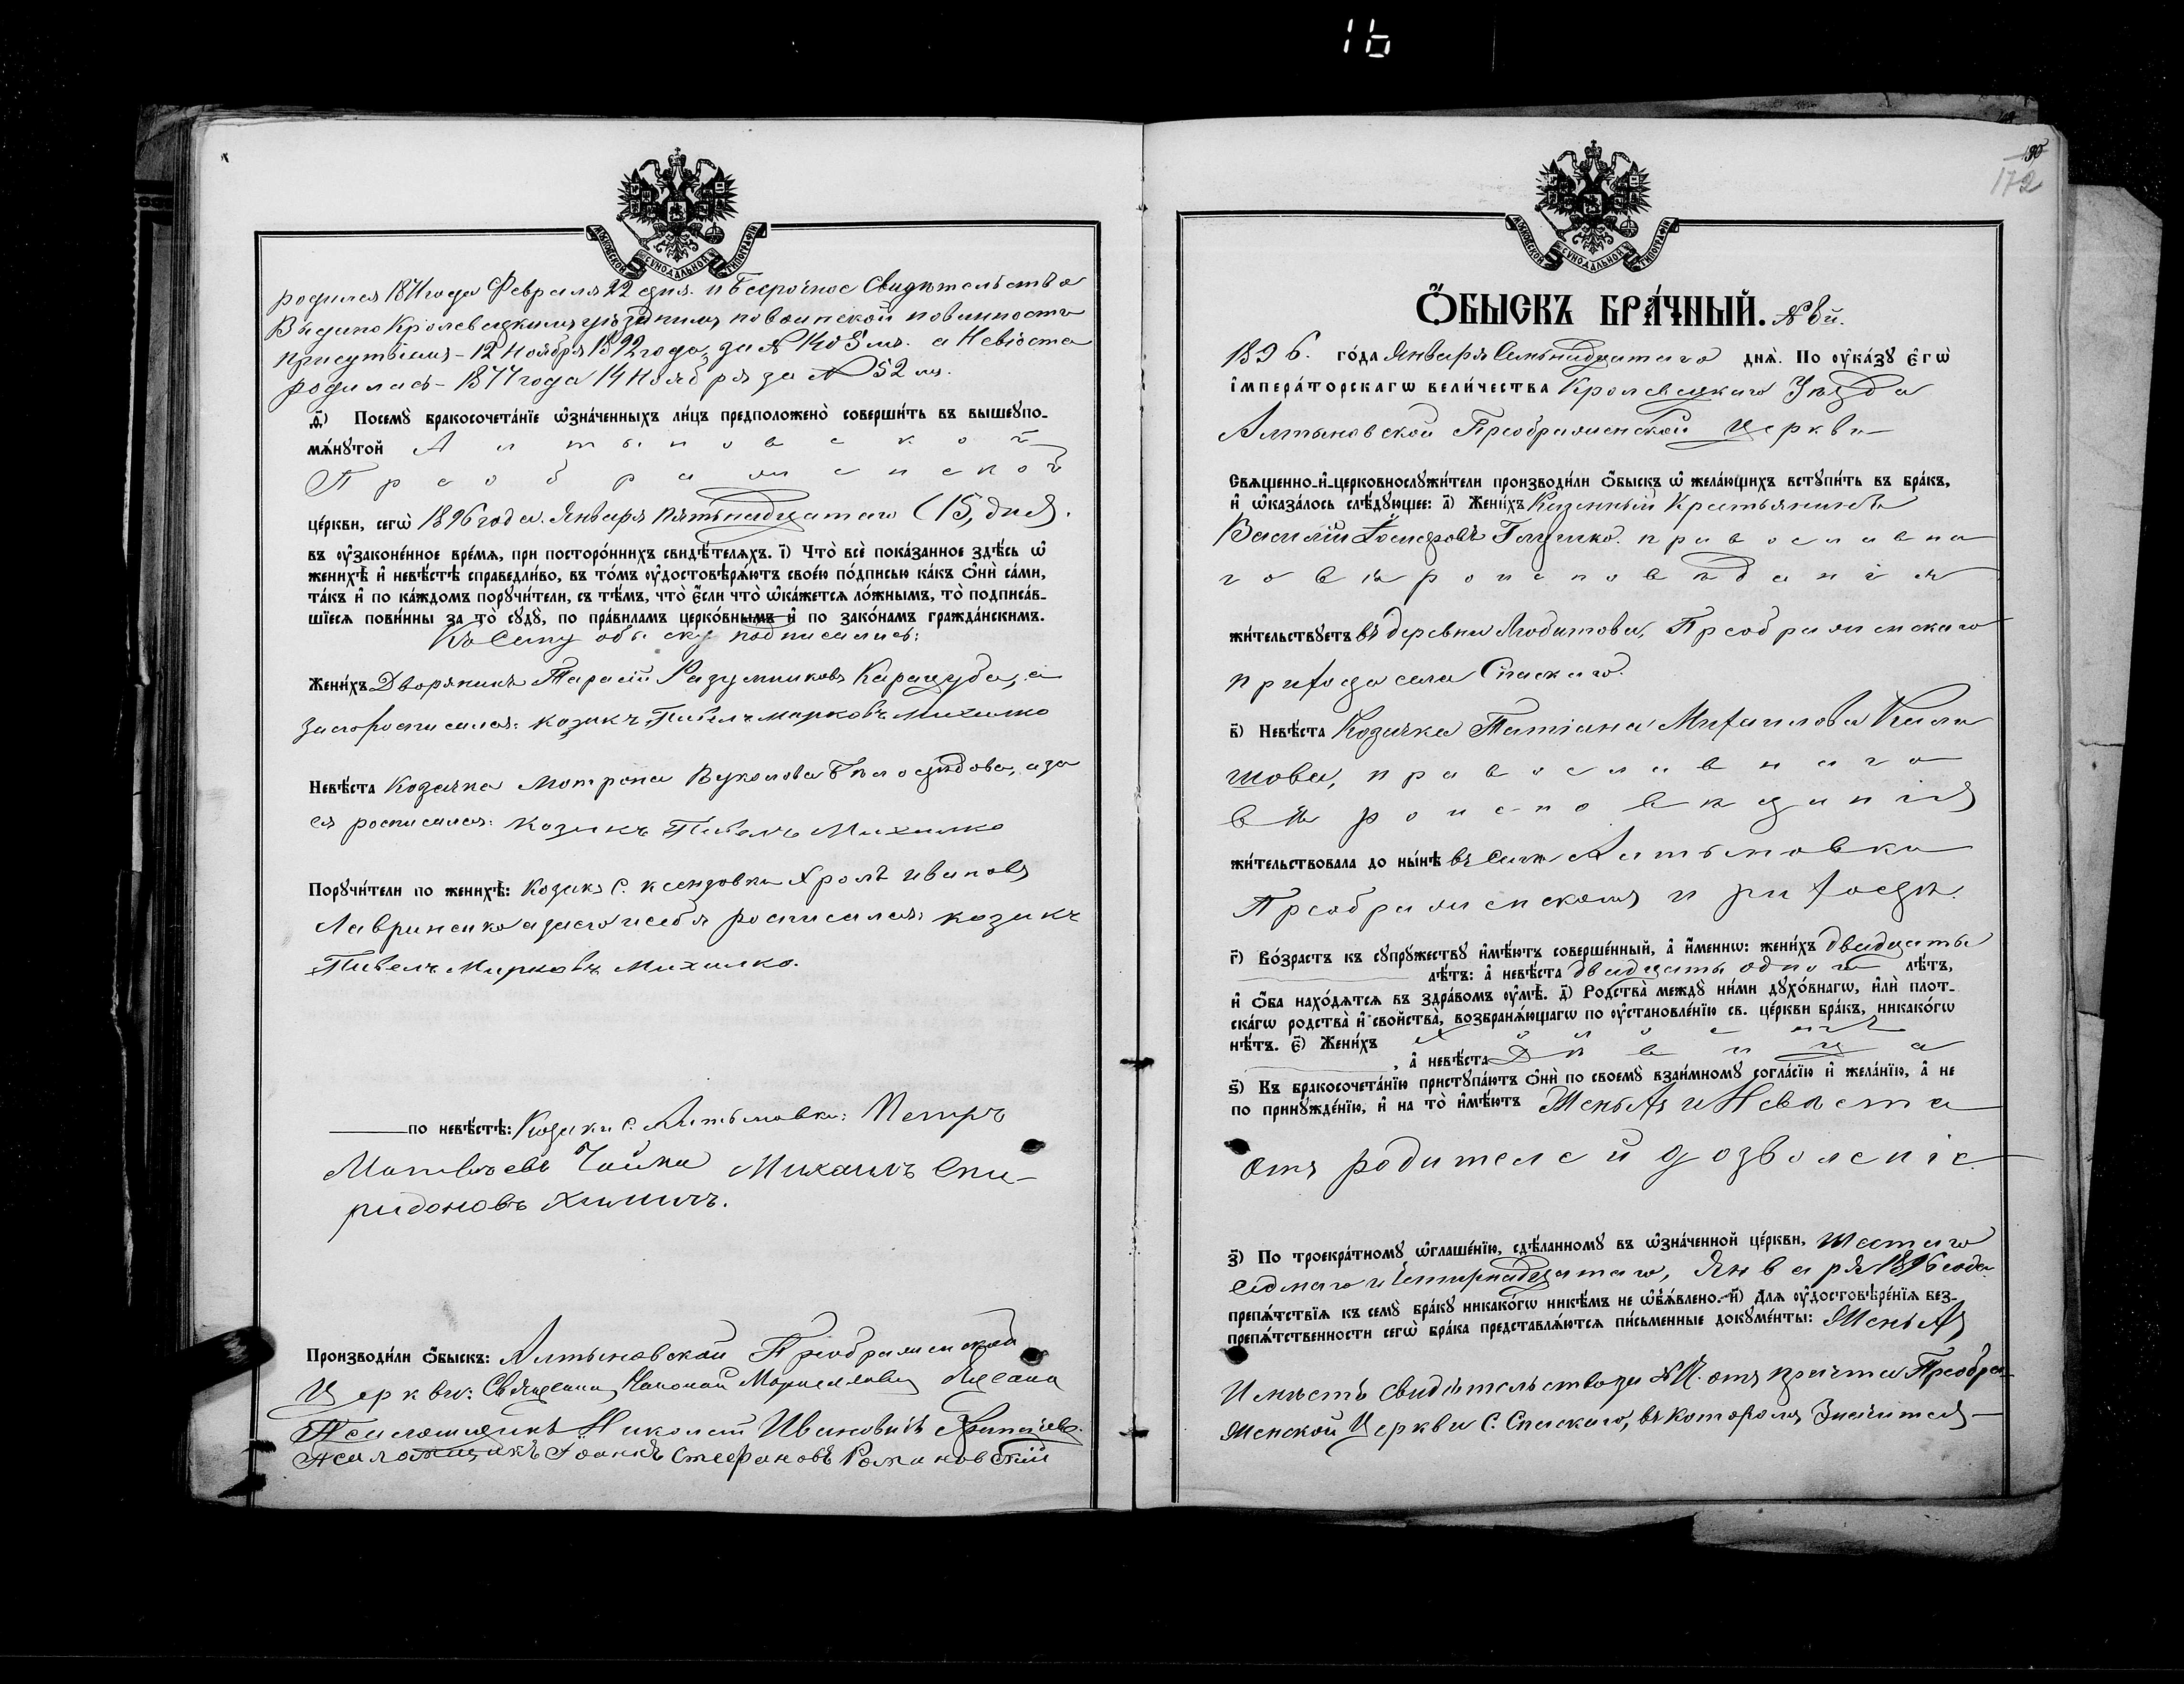 16
МОСКОВСКОЙ СѴНОДАЛЬНОЙ ТИПОГРАФІИ
родился 1871 года Февраля 22 дня. и Безсрочное Свидѣтельство
Выдано Кролевецкимъ уѣзднымъ по воинской повинности
присутсвіемъ – 12 Ноября 1892 года, за № 1405мъ. а Невѣста
родилась – 1877 года 14 Ноября за № 52 мъ.
д҃) Посемꙋ̀ бракосочета́нїе ѡ҆зна́ченныхъ ли́цъ предположено̀ соверши́ть въ вышеꙋпо-
мѧ́нꙋтой Алтыновской
Преображенской
це́ркви, сегѡ̀ 1896 года. Января пятьнадцатаго (15, дня).
въ ᲂу҆законе́нное вре́мѧ, при посторо́ннихъ свидѣ́телѧхъ. і҃) Что̀ всѐ пока́занное здѣ́сь ѡ҆
женихѣ̀ и҆ невѣ́стѣ справедли́во, въ то́мъ ᲂу҆достовѣрѧ́ютъ свое́ю по́дписью ка́къ ѻ҆нѝ са́ми,
та́къ и҆ по ка́ждомъ порꙋчи́тели, съ тѣ́мъ, что̀ є҆́сли что̀ ѡ҆ка́жетсѧ ло́жнымъ, то̀ подписа́в-
шїесѧ пови́нны за то̀ сꙋдꙋ̀, по пра́виламъ церко́внымъ и҆ по зако́намъ гражда́нскимъ.
Къ Сему обыску подписались:
Жени́хъ Дворянинъ Тарасій Разумниковъ Карацуба, а
за него росписался: козакъ Павелъ Марковъ Михилко
Невѣ́ста Козачка Мотрона Вуколова Бѣлосѣдова, а за
ея росписался: козакъ Павелъ Михилко
Порꙋчи́тели по женихѣ̀: Козакъ С. Ксендзовки Хролъ Ивановъ
Лавриненко а за его и себя росписался козакъ
Павелъ Марковъ Михилко.
по невѣ́стѣ: Козаки с. Алтыновки: Петръ
Матвѣевъ Чайка Михаилъ Спи-
ридоновъ Химичъ.
Производи́ли ѻ҆́быскъ: Алтыновской Преображенской
Церкви: Священ. Николай
Псаломщикъ Николай Ивановичъ
Псаломщикъ Іоаннъ Стефановъ Романовскій
190
172
МОСКОВСКОЙ СѴНОДАЛЬНОЙ ТИПОГРАФІИ
Ѻ҆́БЫСКЪ БРА́ЧНЫЙ. № 6й.
1896. го́да Января Семьнадцатаго днѧ̀. По ᲂу҆ка́зꙋ є҆гѡ̀
і҆мпера́торскагѡ вели́чества Кролевецкаго Уѣзда
Алтыновской Преображенской Церкви
Свѧще́нно-и҆-церковнослꙋжи́тели производи́ли ѻ҆́быскъ ѡ҆ жела́ющихъ встꙋпи́ть въ бра́къ,
и҆ ѡ҆каза́лось слѣ́дꙋющее: а҃) Жени́хъ Казенный Крестьянинъ
Василій Іосифовъ Глушко. православна
го вѣроисповѣданія
жи́тельствꙋетъ въ деревни Любитова, Преображенскаго
прихода села Спаскаго.
в҃) Невѣ́ста Козачка Татіана Михаилова Кали
шова, православнаго
вѣроисповѣданія
жи́тельствовала до ны́нѣ въ Селѣ Алтыновки
Преображенскомъ приходѣ.
г҃) Во́зрастъ къ сꙋпрꙋ́жествꙋ и҆мѣ́ютъ соверше́нный, а҆ и҆́меннѡ: жени́хъ двадцать
лѣ́тъ: а҆ невѣ́ста двадцать одного лѣ́тъ,
и҆ ѻ҆́ба нахо́дѧтсѧ въ здра́вомъ ᲂу҆мѣ̀. д҃) Родства̀ междꙋ̀ ни́ми дꙋхо́внагѡ, и҆лѝ плот-
ска́гѡ родства̀ и҆ свойства̀, возбранѧ́ющагѡ по ᲂу҆становле́нїю св. це́ркви бра́къ, никако́гѡ
нѣ́тъ. є҃) Жени́хъ холостъ
, а҆ невѣ́ста Дѣвица
ѕ҃) Къ бракосочета́нїю пристꙋпа́ютъ ѻ҆нѝ по своемꙋ̀ взаи́мномꙋ согла́сїю и҆ жела́нїю, а҆ не
по принꙋжде́нїю, и҆ на то̀ и҆мѣ́ютъ Женихъ и Невѣста
отъ родителей дозволеніе.
з҃) По троекра́тномꙋ ѡ҆глаше́нїю, сдѣ́ланномꙋ въ ѡ҆зна́ченной це́ркви, шестаго
седмаго и Четырнадцатаго, Января 1896 года.
препѧ́тствїѧ къ семꙋ̀ бра́кꙋ никако́гѡ никѣ́мъ не ѡ҆б̾ѧ́влено. и҃) Длѧ ᲂу҆достовѣре́нїѧ без-
препѧ́тственности сегѡ̀ бра́ка представлѧ́ютсѧ пи́сьменные докꙋме́нты: Женихъ
Имѣетъ свидѣтельство за № отъ причта Преобра-
женской Церкви С. Спаскаго, въ которомъ Значится –